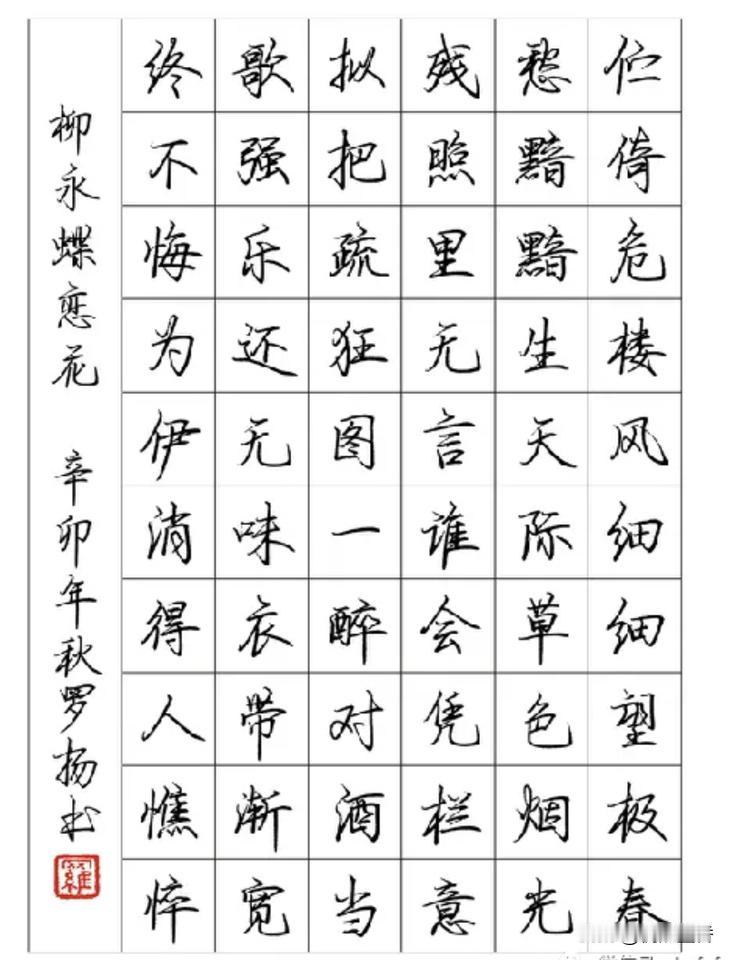 伫倚危楼风细细望极春
愁黯黯生天际草色烟光
残照里无言谁会凭栏意
拟把疏狂图一醉对酒当
歌强乐还无味衣带渐宽
终不悔为伊消得人憔悴
柳永蝶恋花 辛卯年秋罗扬书
羅